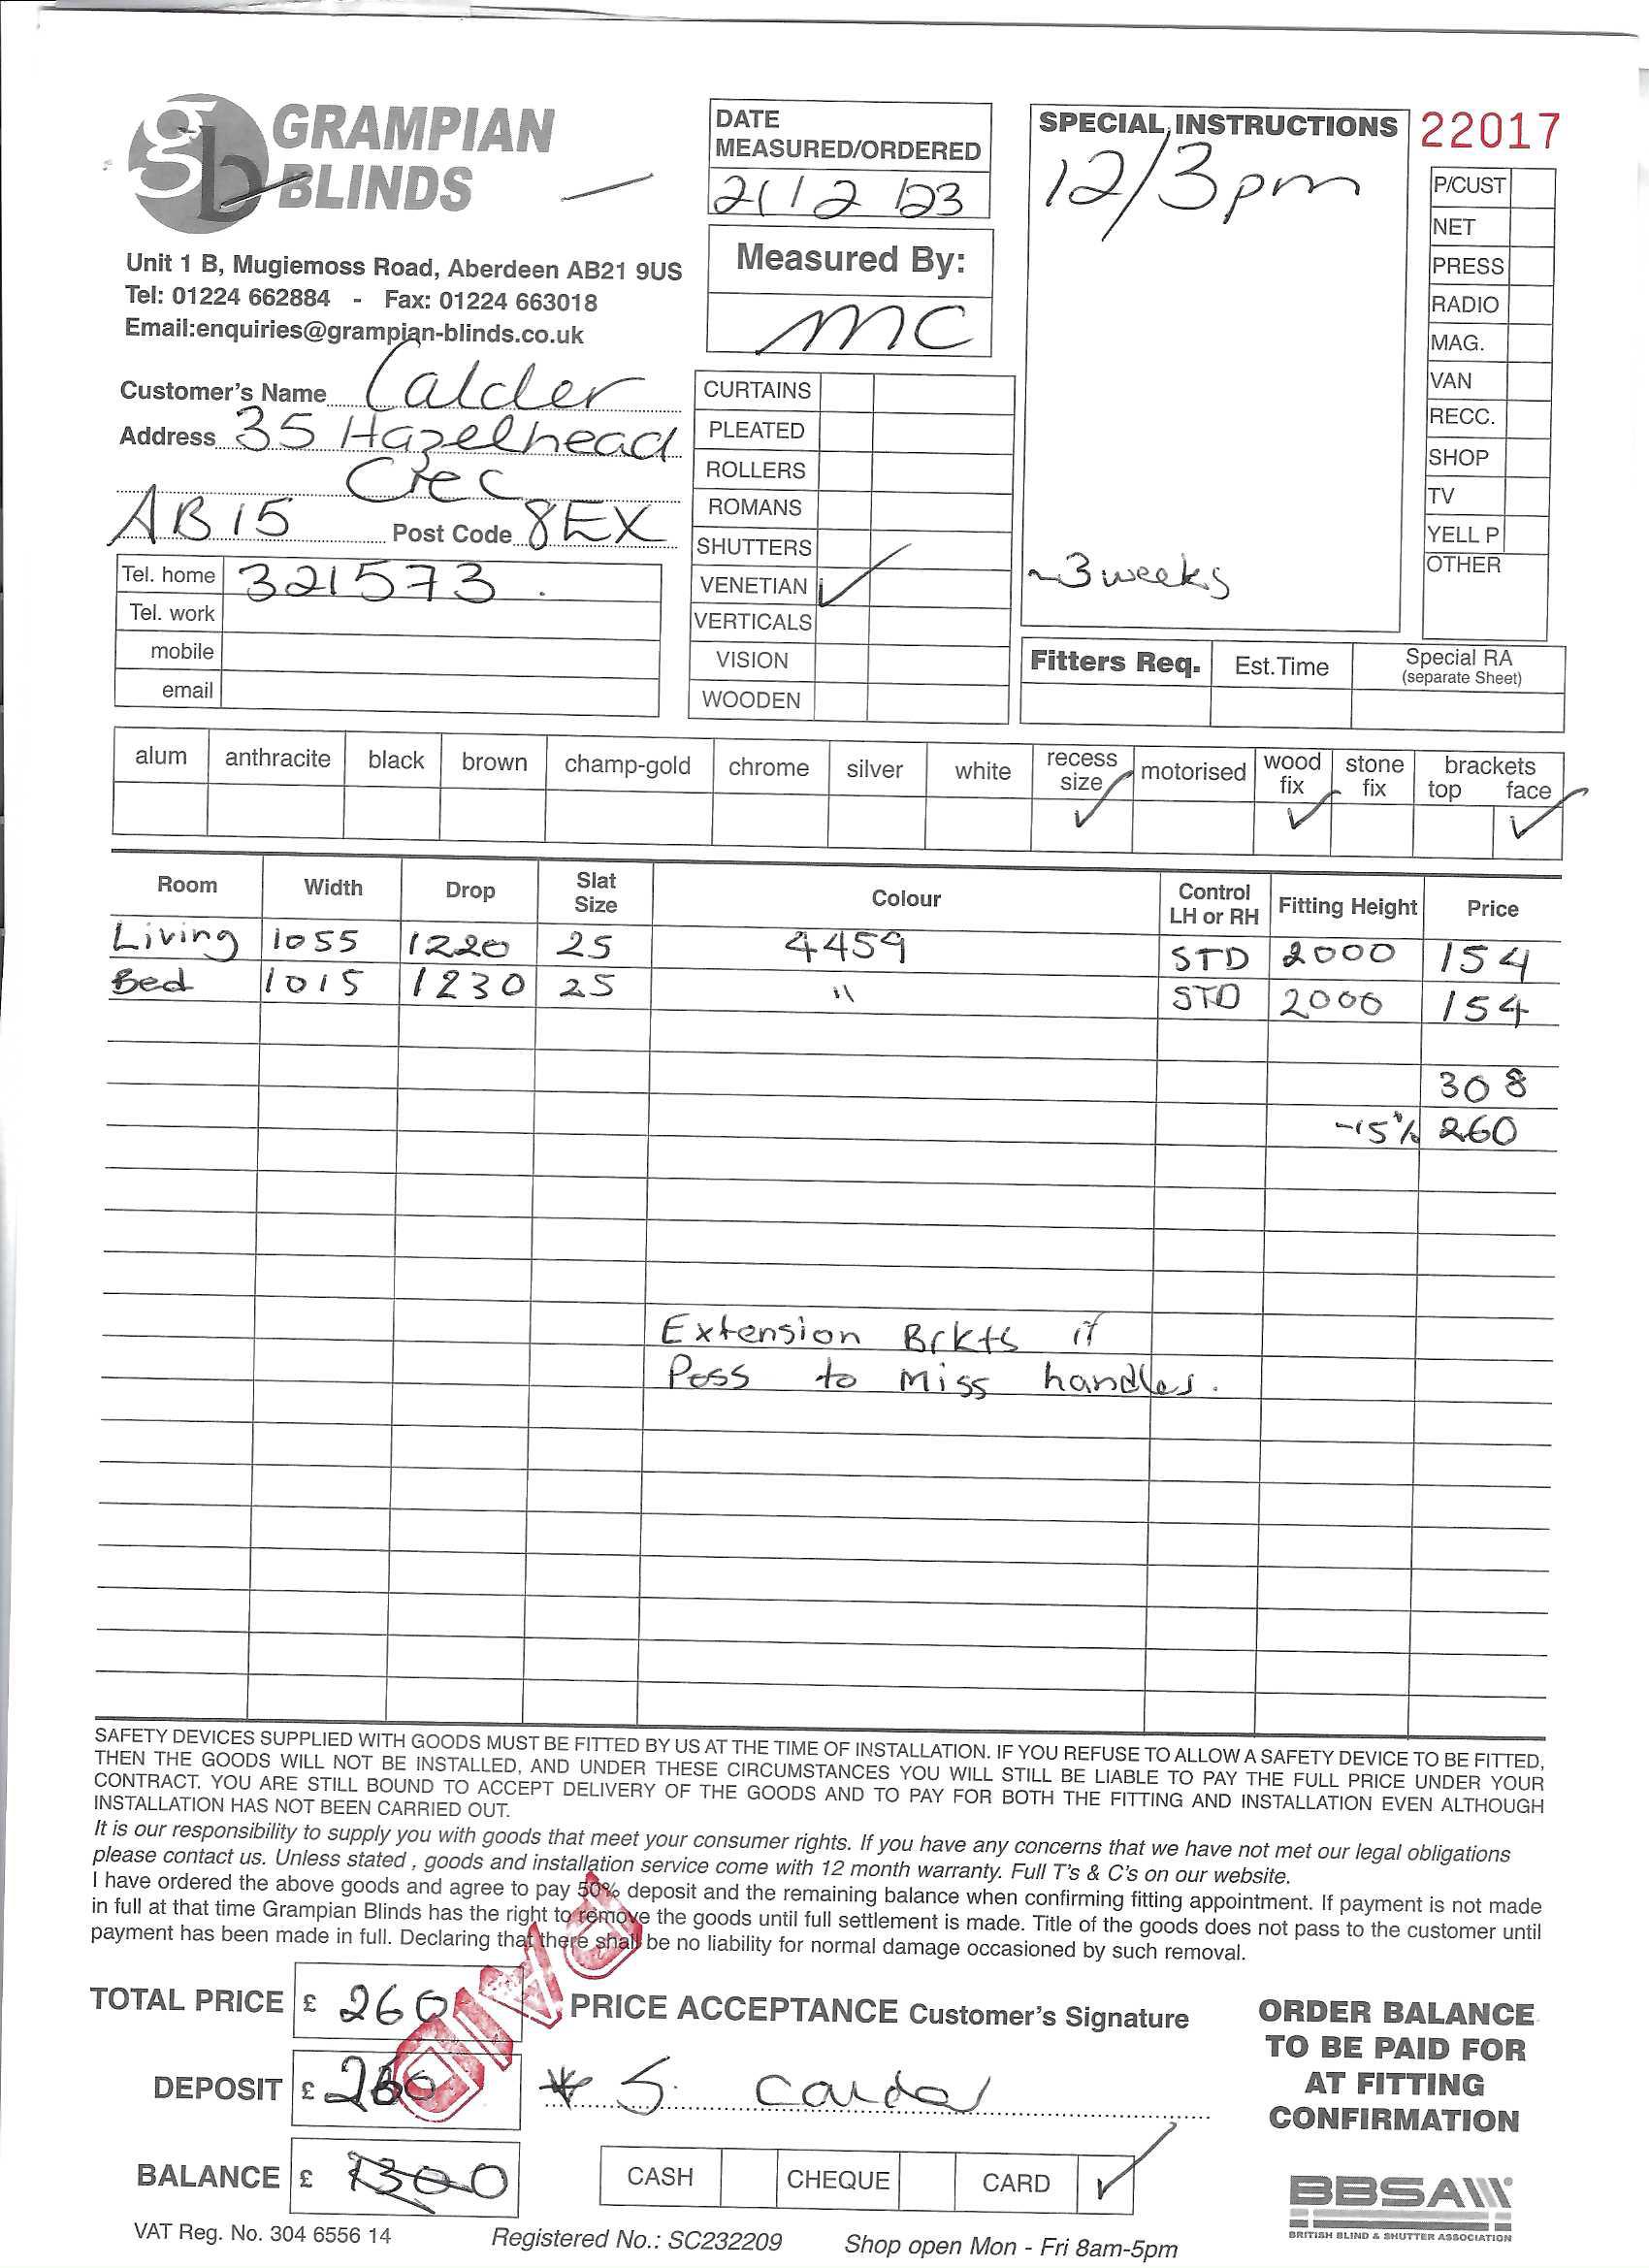 gb GRAMPIAN
BLINDS
Unit 1 B, Mugiemoss Road, Aberdeen AB21 9US
Tel: 01224 662884 - Fax: 01224 663018
Email:enquiries@grampian-blinds.co.uk
Customer's Name Calder
Address 35 Hazelhead
Cres
AB15 Post Code 8EX
Tel. home 321573
Tel. work
mobile
email
DATE
MEASURED/ORDERED
21/2/23
Measured By:
MC
CURTAINS
PLEATED
ROLLERS
ROMANS
SHUTTERS
VENETIAN ✓
VERTICALS
VISION
WOODEN
SPECIAL INSTRUCTIONS
12/3pm
~3 weeks
22017
P/CUST
NET
PRESS
RADIO
MAG.
VAN
RECC.
SHOP
TV
YELL P
OTHER
Fitters Req. Est.Time Special RA
(separate Sheet)
alum anthracite black brown champ-gold chrome silver white recess size ✓ motorised wood fix ✓ stone fix brackets top face ✓
Room Width Drop Slat Size Colour Control LH or RH Fitting Height Price
Living 1055 1220 25 4459 STD 2000 154
Bed 1015 1230 25 " STD 2000 154
308
-15% 260
Extension Brkts if
Poss to Miss handles.
SAFETY DEVICES SUPPLIED WITH GOODS MUST BE FITTED BY US AT THE TIME OF INSTALLATION. IF YOU REFUSE TO ALLOW A SAFETY DEVICE TO BE FITTED,
THEN THE GOODS WILL NOT BE INSTALLED, AND UNDER THESE CIRCUMSTANCES YOU WILL STILL BE LIABLE TO PAY THE FULL PRICE UNDER YOUR
CONTRACT. YOU ARE STILL BOUND TO ACCEPT DELIVERY OF THE GOODS AND TO PAY FOR BOTH THE FITTING AND INSTALLATION EVEN ALTHOUGH
INSTALLATION HAS NOT BEEN CARRIED OUT.
It is our responsibility to supply you with goods that meet your consumer rights. If you have any concerns that we have not met our legal obligations
please contact us. Unless stated , goods and installation service come with 12 month warranty. Full T's & C's on our website.
I have ordered the above goods and agree to pay 50% deposit and the remaining balance when confirming fitting appointment. If payment is not made
in full at that time Grampian Blinds has the right to remove the goods until full settlement is made. Title of the goods does not pass to the customer until
payment has been made in full. Declaring that there shall be no liability for normal damage occasioned by such removal.
PAID
TOTAL PRICE £ 260
DEPOSIT £ 260
BALANCE £ 0
PRICE ACCEPTANCE Customer's Signature
* S. Calder
CASH CHEQUE CARD ✓
ORDER BALANCE
TO BE PAID FOR
AT FITTING
CONFIRMATION
BBSA
BRITISH BLIND & SHUTTER ASSOCIATION
VAT Reg. No. 304 6556 14 Registered No.: SC232209 Shop open Mon - Fri 8am-5pm